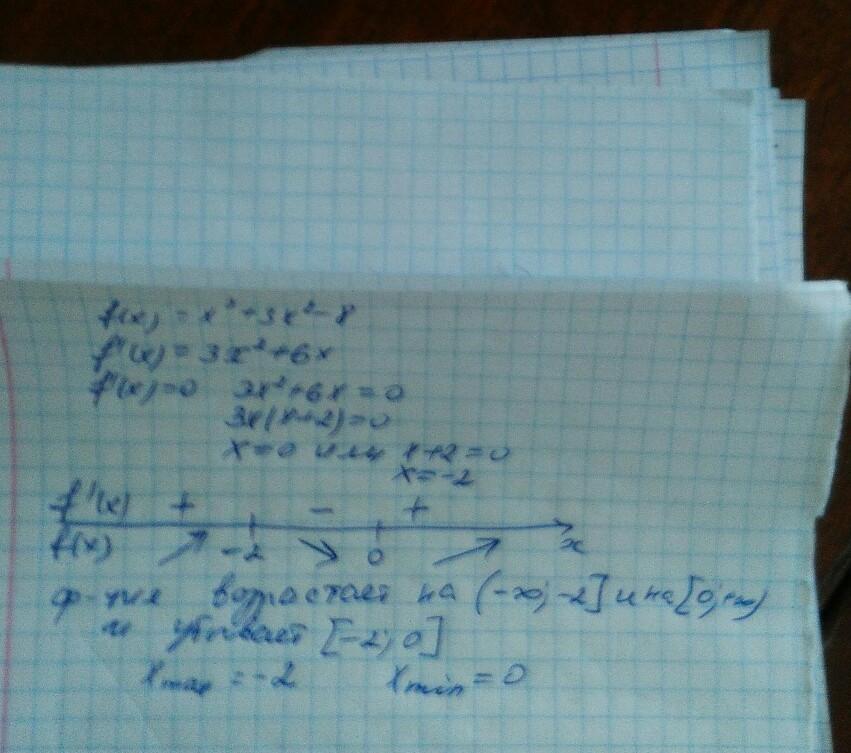 f(x) = x³+3x²-8
f'(x) = 3x²+6x
f'(x)=0 3x²+6x=0
3x(x+2)=0
x=0 или x+2=0
x=-2
f'(x) + - +
f(x) ↗ -2 ↘ 0 ↗ x
ф-ция возрастает на (-∞; -2] и на [0; +∞)
и убывает [-2; 0]
xmax = -2 xmin = 0